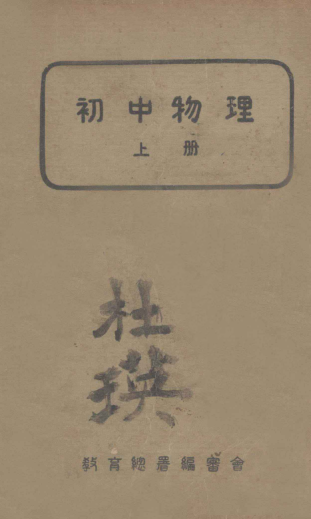 初中物理
上册
杜
瑛
教育總署編審會